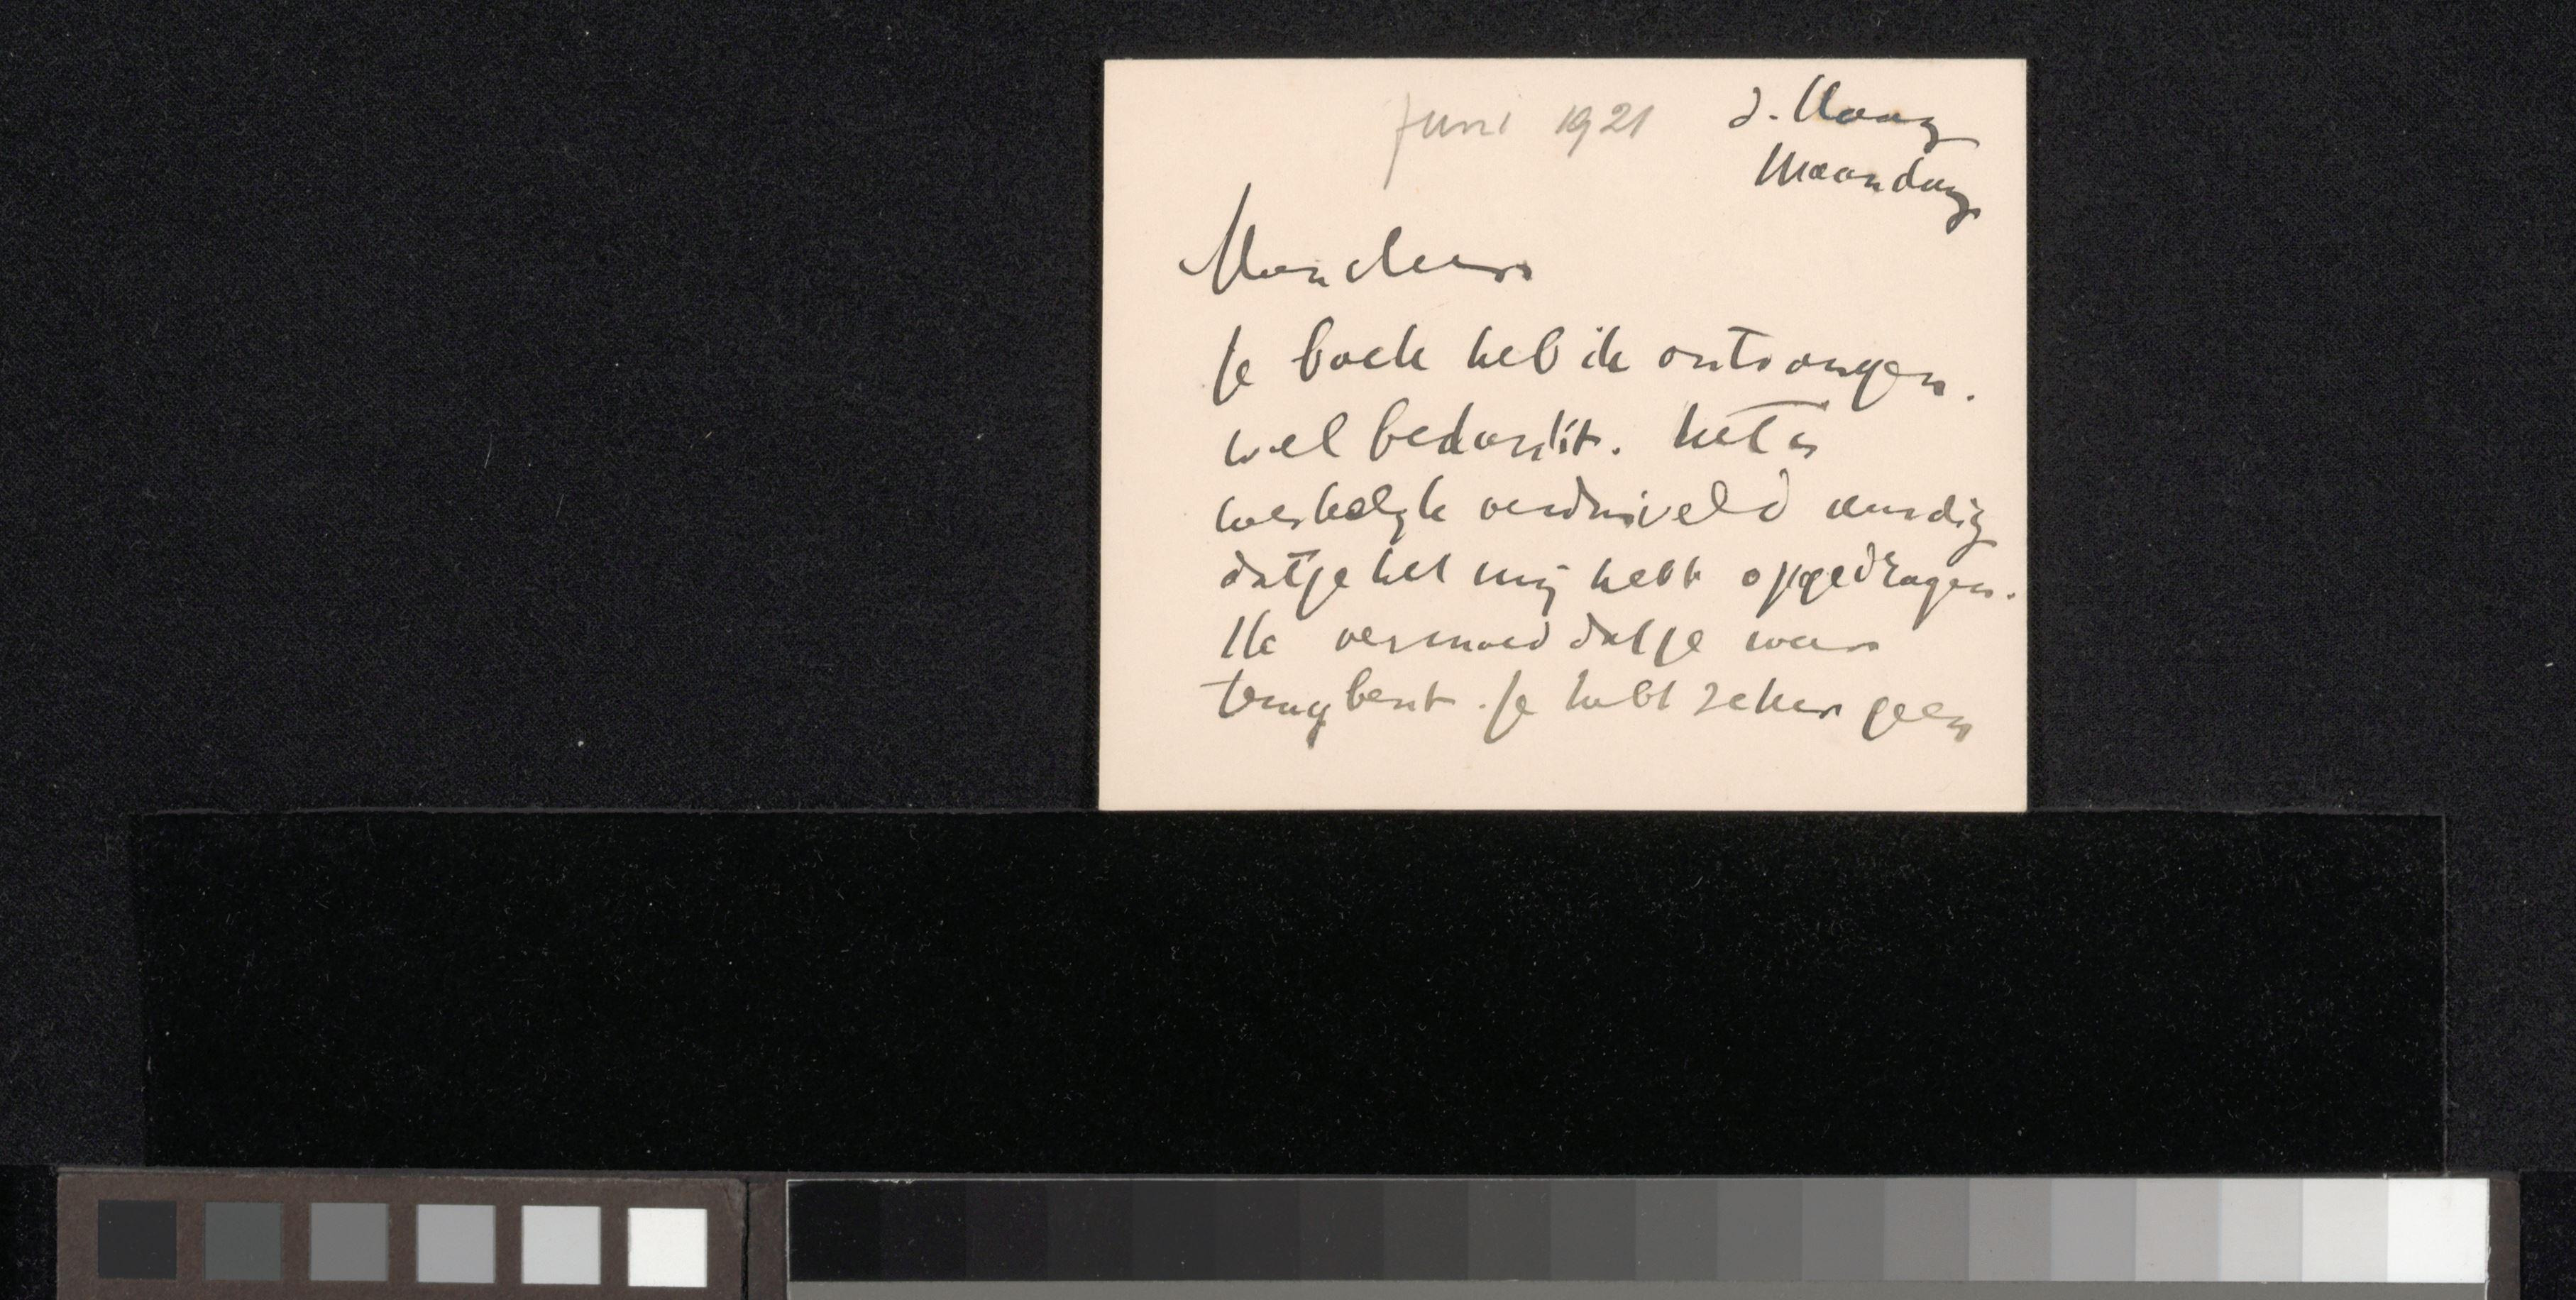 Juni 1921
d. Haag
Maandag
Mon cher
Je boek heb ik ontvangen.
wel bedankt. het is
werkelijk verduiveld aardig
dat je het mij hebt opgedragen.
Ik vermoed dat je weer
terug bent. Je hebt zeker geen